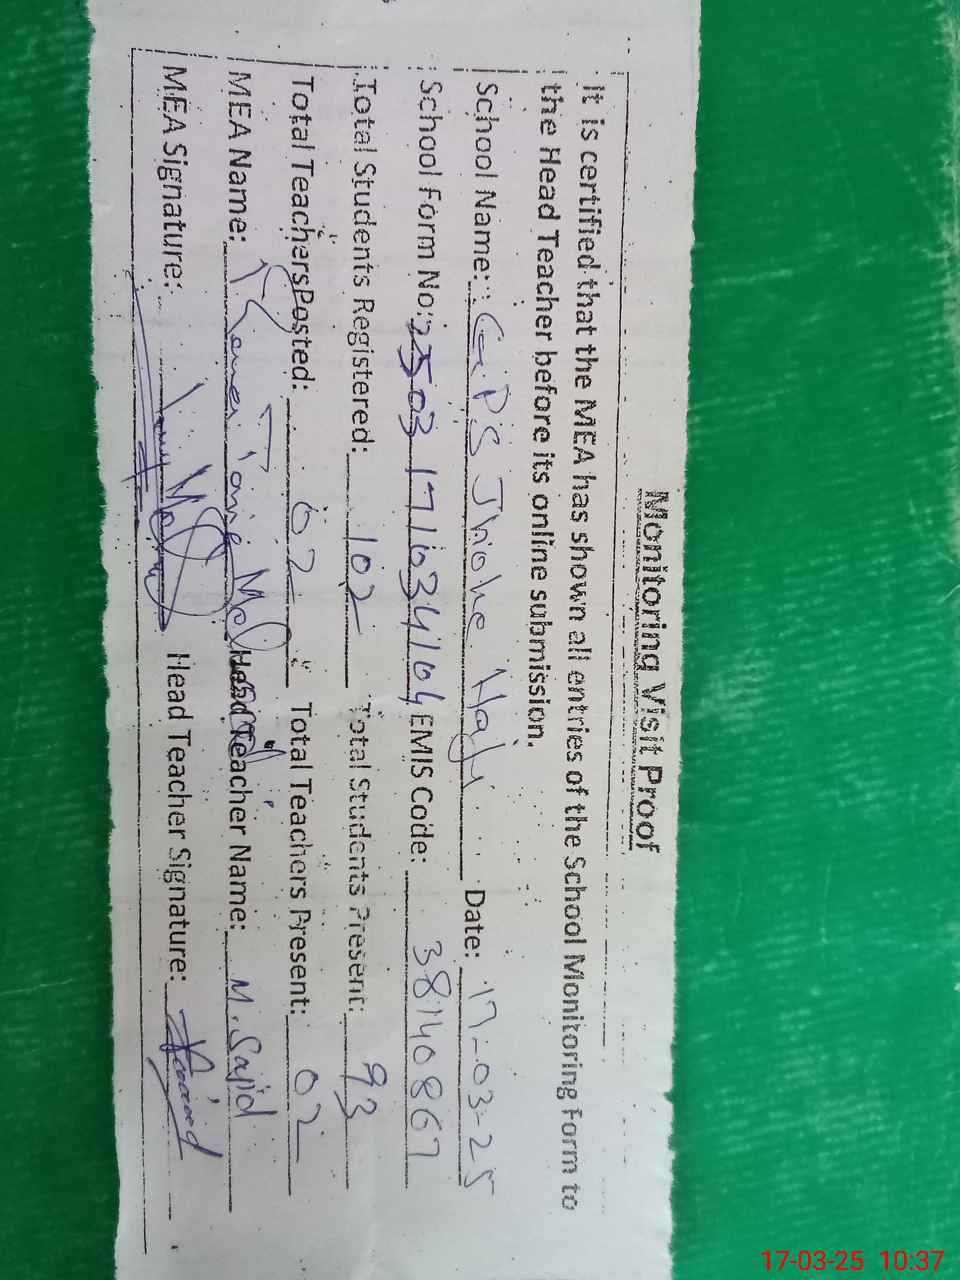 Monitoring Visit Proof
It is certified that the MEA has shown all entries of the School Monitoring Form to
the Head Teacher before its online submission.
School Name: GPS Date: 17-03-25
School Form No: 2503 EMIS Code: 38140867
Total Students Registered: 102 Total Students Present: 93
Total Teachers Posted: 02 Total Teachers Present: 02
MEA Name: Head Teacher Name: M. Sajid
MEA Signature: Head Teacher Signature:
17-03-25 10:37